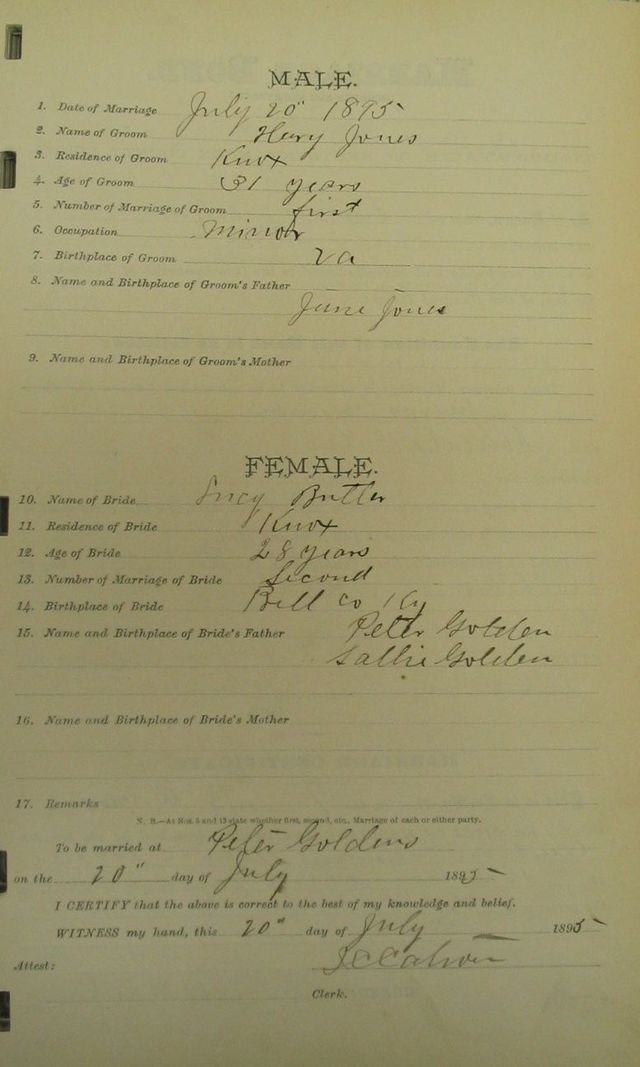 MALE.
1. Date of Marriage July 20" 1895
2. Name of Groom Henry Jones
3. Residence of Groom Knox
4. Age of Groom 31 years
5. Number of Marriage of Groom first
6. Occupation Minor
7. Birthplace of Groom Va
8. Name and Birthplace of Groom's Father
Jones
9. Name and Birthplace of Groom's Mother
FEMALE.
10. Name of Bride Lucy Butler
11. Residence of Bride Knox
12. Age of Bride 28 years
13. Number of Marriage of Bride Second
14. Birthplace of Bride Bell Co Ky
15. Name and Birthplace of Bride's Father Peter Golden
Sallie Golden
16. Name and Birthplace of Bride's Mother
17. Remarks
N. B.—At Nos. 5 and 13 state whether first, second, etc., Marriage of each or either party.
To be married at Peter Goldens
on the 20" day of July 1895
I CERTIFY that the above is correct to the best of my knowledge and belief.
WITNESS my hand, this 20" day of July 1895
Attest:
Clerk.